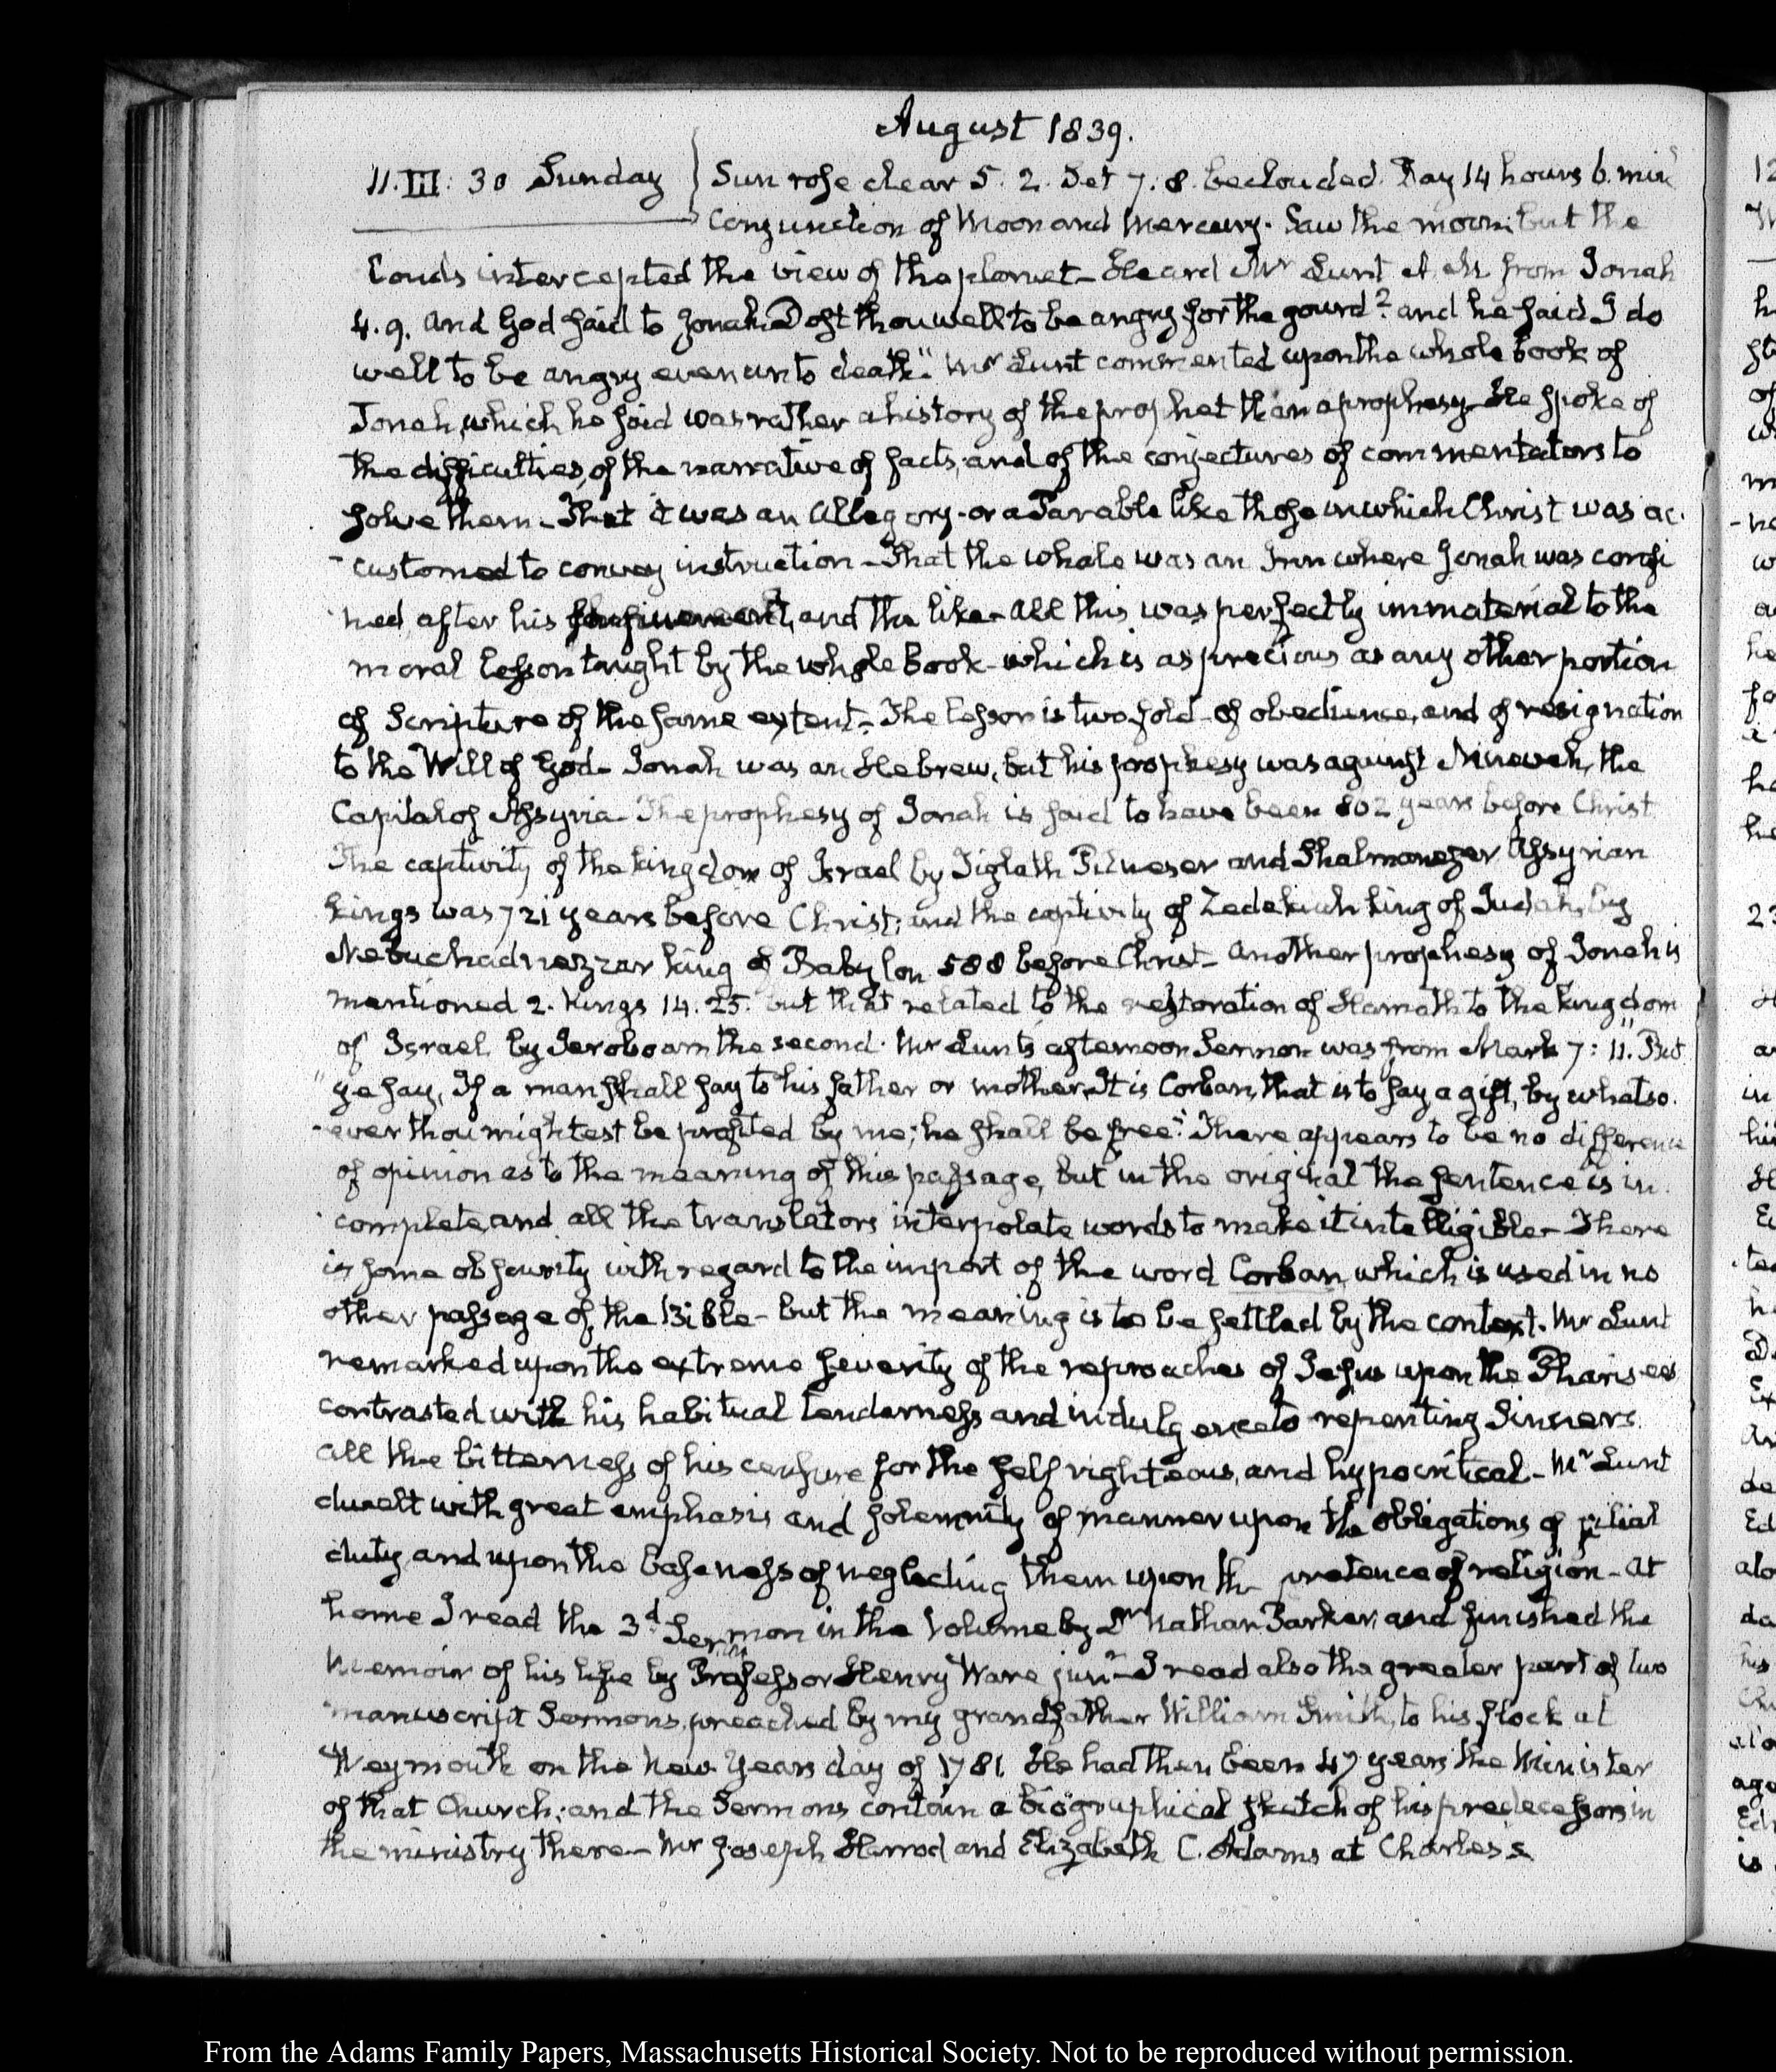 August 1839.
11. III: 30 Sunday } Sun rose clear 5. 2. Set 7. 8. beclouded. Day 14 hours 6. min
Conjunction of Moon and Mercury. Saw the moon; but the
Couds intercepted the view of the planet_ Heard Mr Lunt A. M. from Jonah
4. 9. And God said to Jonah Dost thou well to be angry for the gourd? and he said I do
well to be angry even unto death." Mr Lunt commented upon the whole book of
Jonah, which he said was rather a history of the prophet than a prophesy_ He spoke of
the difficulties, of the narrative of facts, and of the conjectures of commentators to
solve them_ That it was an Allegory_ or a Parable like those in which Christ was ac
-customed to convey instruction_ That the whale was an Inn where Jonah was confi
ned after his and the like_ All this was perfectly immaterial to the
moral lesson taught by the whole Book_ which is as precious as any other portion
of Scripture of the same extent_ The lesson is two fold_ of obedience, and of resignation
to the Will of God_ Jonah was an Hebrew, but his prophesy was against Nineveh, the
Capital of Assyria_ The prophesy of Jonah is said to have been 802 years before Christ
The captivity of the kingdom of Israel by Tiglath Pilneser and Shalmaneser Assyrian
kings was 721 years before Christ; and the captivity of Zedekiah king of Judah, by
Nebuchadnezzar king of Babylon 588 before Christ_ Another prophesy of Jonah is
mentioned 2. Kings 14. 25. but that related to the restoration of Hamath to the kingdom
of Israel by Jeroboam the second. Mr Lunt's afternoon Sermon was from Mark 7: 11. "But
"ye say, If a man shall say to his father or mother, It is Corban, that is to say a gift, by whatso
-ever thou mightest be profited by me; he shall be free." There appears to be no difference
of opinion as to the meaning of this passage, but in the original the sentence is in
complete, and all the translators interpolate words to make it intelligible_ There
is some obscurity with regard to the import of the word Corban, which is used in no
other passage of the Bible_ but the meaning is to be settled by the context. Mr Lunt
remarked upon the extreme severity of the reproaches of Jesus upon the Pharisees
contrasted with his habitual tenderness and indulgence to repenting Sinners.
All the bitterness of his censure for the self righteous, and hypocritical_ Mr Lunt
dwelt with great emphasis and solemnity of manner upon the obligations of filial
duty and upon the baseness of neglecting them upon the pretence of religion_ At
home I read the 3d Sermon in the Volume by Dr Nathan Parker, and finished the
Memoir of his life by Professor Henry Ware junr_ I read also the greater part of two
manuscript Sermons, preached by my grandfather William Smith, to his flock at
Weymouth on the New Years day of 1781. He had then been 47 years the Minister
of that Church; and the Sermons contain a biographical sketch of his predecessors in
the ministry there_ Mr Joseph Harrod and Elizabeth C. Adams at Charles's
From the Adams Family Papers, Massachusetts Historical Society. Not to be reproduced without permission.